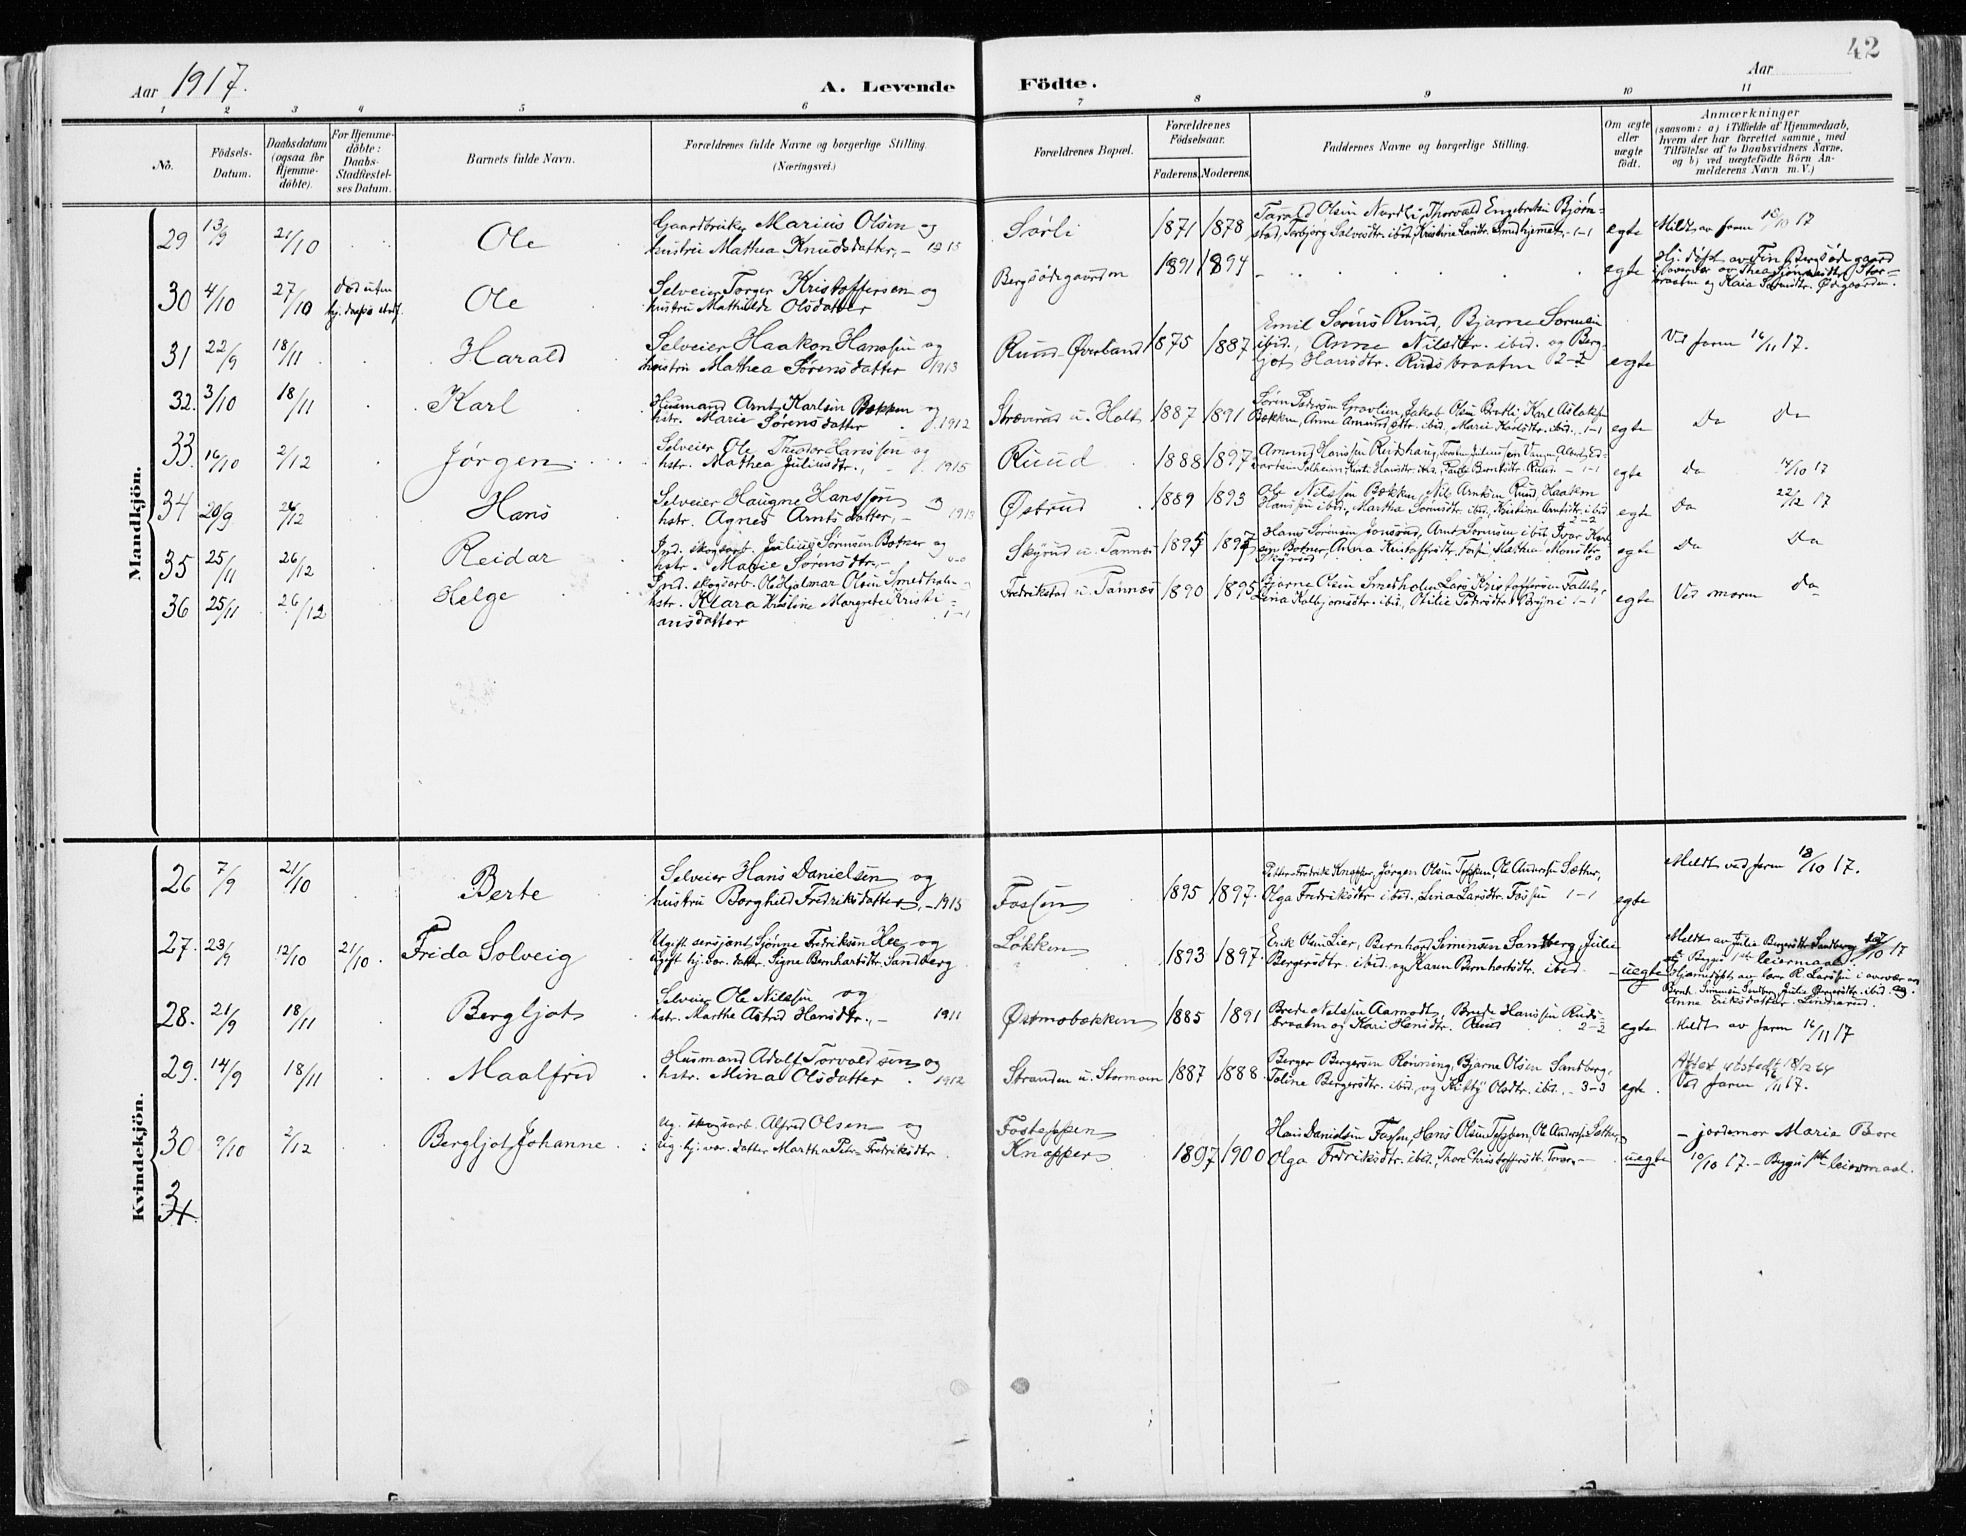 42
Aar 1917. A. Levende Födte. Aar
1 2 3 4 5 6 7 8 9 10 11
No.
Födsels-
Datum.
Daabsdatum
(ogsaa for
Hjemme-
döbte).
For Hjemme-
döbte:
Daabs-
Stadfæstel-
ses Datum.
Barnets fulde Navn.
Forældrenes fulde Navne og borgerlige Stilling.
(Næringsvei.)
Forældrenes Bopæl.
Forældrenes
Födselsaar.
Faderens. Moderens.
Faddernes Navne og borgerlige Stilling.
Om ægte
eller
uægte
födt.
Anmærkninger
(saasom: a) i Tilfælde af Hjemmedaab,
hvem der har forrettet samme, med
Tilföielse af to Daabsvidners Navne,
og b) ved uægtefödte Börn An-
melderens Navn m. V.)
Mandkjön.
29 13/9 21/10 Ole
Gaardbruker Marius Olsen og
hustru Mathea Knudsdatter,
Sørli 1871 1878
Tarald Olsen Nordli, Thorvald Engebretsen Bjørn-
stad, Torbjørg Salvesdtr. ibid, Kristine Larsdtr. Smedhjemmet, 1-1
egte Meldt av farm 18/10 17
30 4/10 27/10 Ole
Selveier Torger Kristoffersen og
hustru Mathilde Olsdatter
Bergsødegaarden 1891 1894
egte Hj. døpt av Fin Bergsødegaard
31 22/9 18/11 Harald
Selveier Haakon Hanssen og
hustru Mathea Sørensdatter 1913
Ruud-Øverland 1875 1887
Emil Sørens Ruud, Bjarne Sørensen
ibid., Anne Nilsdtr. ibid. og Berg-
ljot Hansdtr. Rudsbraaten 2-2
egte Ved farm 16/11 17.
32. 3/10 18/11 Karl
Husmand Arnt Karlsen Bækken og
hstr. Marie Sørensdatter 1912
Strøverud u. Holt 1887 1891
Søren Pedersen Gravlien, Jakob Olsen Bratli, Karl Aslaksen
Bækken, Anne Amundsdtr. ibid, Marie Karlsdtr. ibid., 1-1
egte Da Da
33. 16/10 2/12 Jørgen
Selveier Ole Theodor Hanssen og
hstr. Mathea Juliusdtr., 1915
Ruud 1888 1897
egte da 17
34 20/9 26/12 Hans
Selveier Haugne Hanssøn
hstr. Agnes Arntsdatter,
Østrud 1889 1893
Ole Nilssen Bækken, Nils Arntsen Ruud, Haakon
Hanssen ibid., Martha Sørensdtr. ibid, Kristine Arntsdtr. ibid
2-2
egte Da 22/12 17
35 25/11 26/12 Reidar
Ind. skogsarb. Julius Sørensen Botner og
hstr. Marie Sørensdtr. 0-0
Skyrud u. Tannæs 1895
egte Da Da
36 25/11 26/12 Helge
Ind. skogsarb. Ole Hjalmar Olsen Smedholen
hstr. Klara Kristine Margrete Kristi-
ansdatter 1-1
Fredrikstad u. Tannæs 1890 1895
Bjarne Olsen Smedholen, Lars Kristoffersen
Lina Kolbjørnsdtr. ibid, Otilie Pedersdtr. Bryni 1-1
egte Ved moren Da
Kvindekjön.
26 7/9 21/10 Berte
Selveier Hans Danielsen og
hustru Borghild Fredriksdatter, 1915
Fossen 1895 1897.
Petter Fredrik Knapper, Jørgen Olsen, Ole Andersen Sætter,
Olga Fredriksdtr. ibid., Lina Larsdtr. Fossen 1-1
egte Meldt ved farm 18/10 17.
27. 23/9 12/10 21/10. Frida Solveig
Ugift sersjant Sjønne Fredriksen Hee og
ugift hj.vær. datter Signe Bernhartsdtr. Sandberg
Løkken 1893 1897.
Erik Olsen Lier, Bernhard Simensen Sandberg, Julie
Bergersdtr. ibid. og Karen Bernhartsdtr. ibid
uegte Meldt av Julie Bergersdtr. Sandberg 10 17
Begges 1ste leiermaal.
Hjemmedøpt av lærer R. Larssen i overvær av
Brede Simensen Sandberg, Julie Bergersdtr. ibid. og
Anne Eriksdatter Linnerud.
28. 21/9 18/11 Bergljot
Selveier Ole Nilssen og
hstr. Marthe Astrid Hansdtr., 1911
Østmobækken 1885 1891
Brede Nilssen Aamodt, Brede Hanssen Ruds-
braaten og Kari Hansdtr. Ruud 2-2
egte Meldt av farm 16/11 17
29. 14/9 18/11 Maalfrid
Husmand Adolf Torvaldsen og
hstr. Mina Olsdatter 1912
Stranden u. Stormoen 1887 1888
Berger Bergersen Rønning, Bjarne Olsen Sandberg,
Taline Bergersdtr. ibid, og Kitty Olsdtr. ibid. 3-3
egte. Attest utstedt 18/12 64
Ved farm 16/11 17.
30 9/10 2/12 Bergljot Johanne
Ug. skogsarb. Alfred Olsen og
ug. hj.vær. datter Martha Petra Fredriksdtr
Fosteppen
Knapper 1897 1900
Hans Danielsen Fossen, Hans Olsen, Ole Andersen Sætter,
Olga Fredriksdtr. ibid.,
uegte jordemor Marie Bore
10/10 17. - Begges 1ste leiermaal.